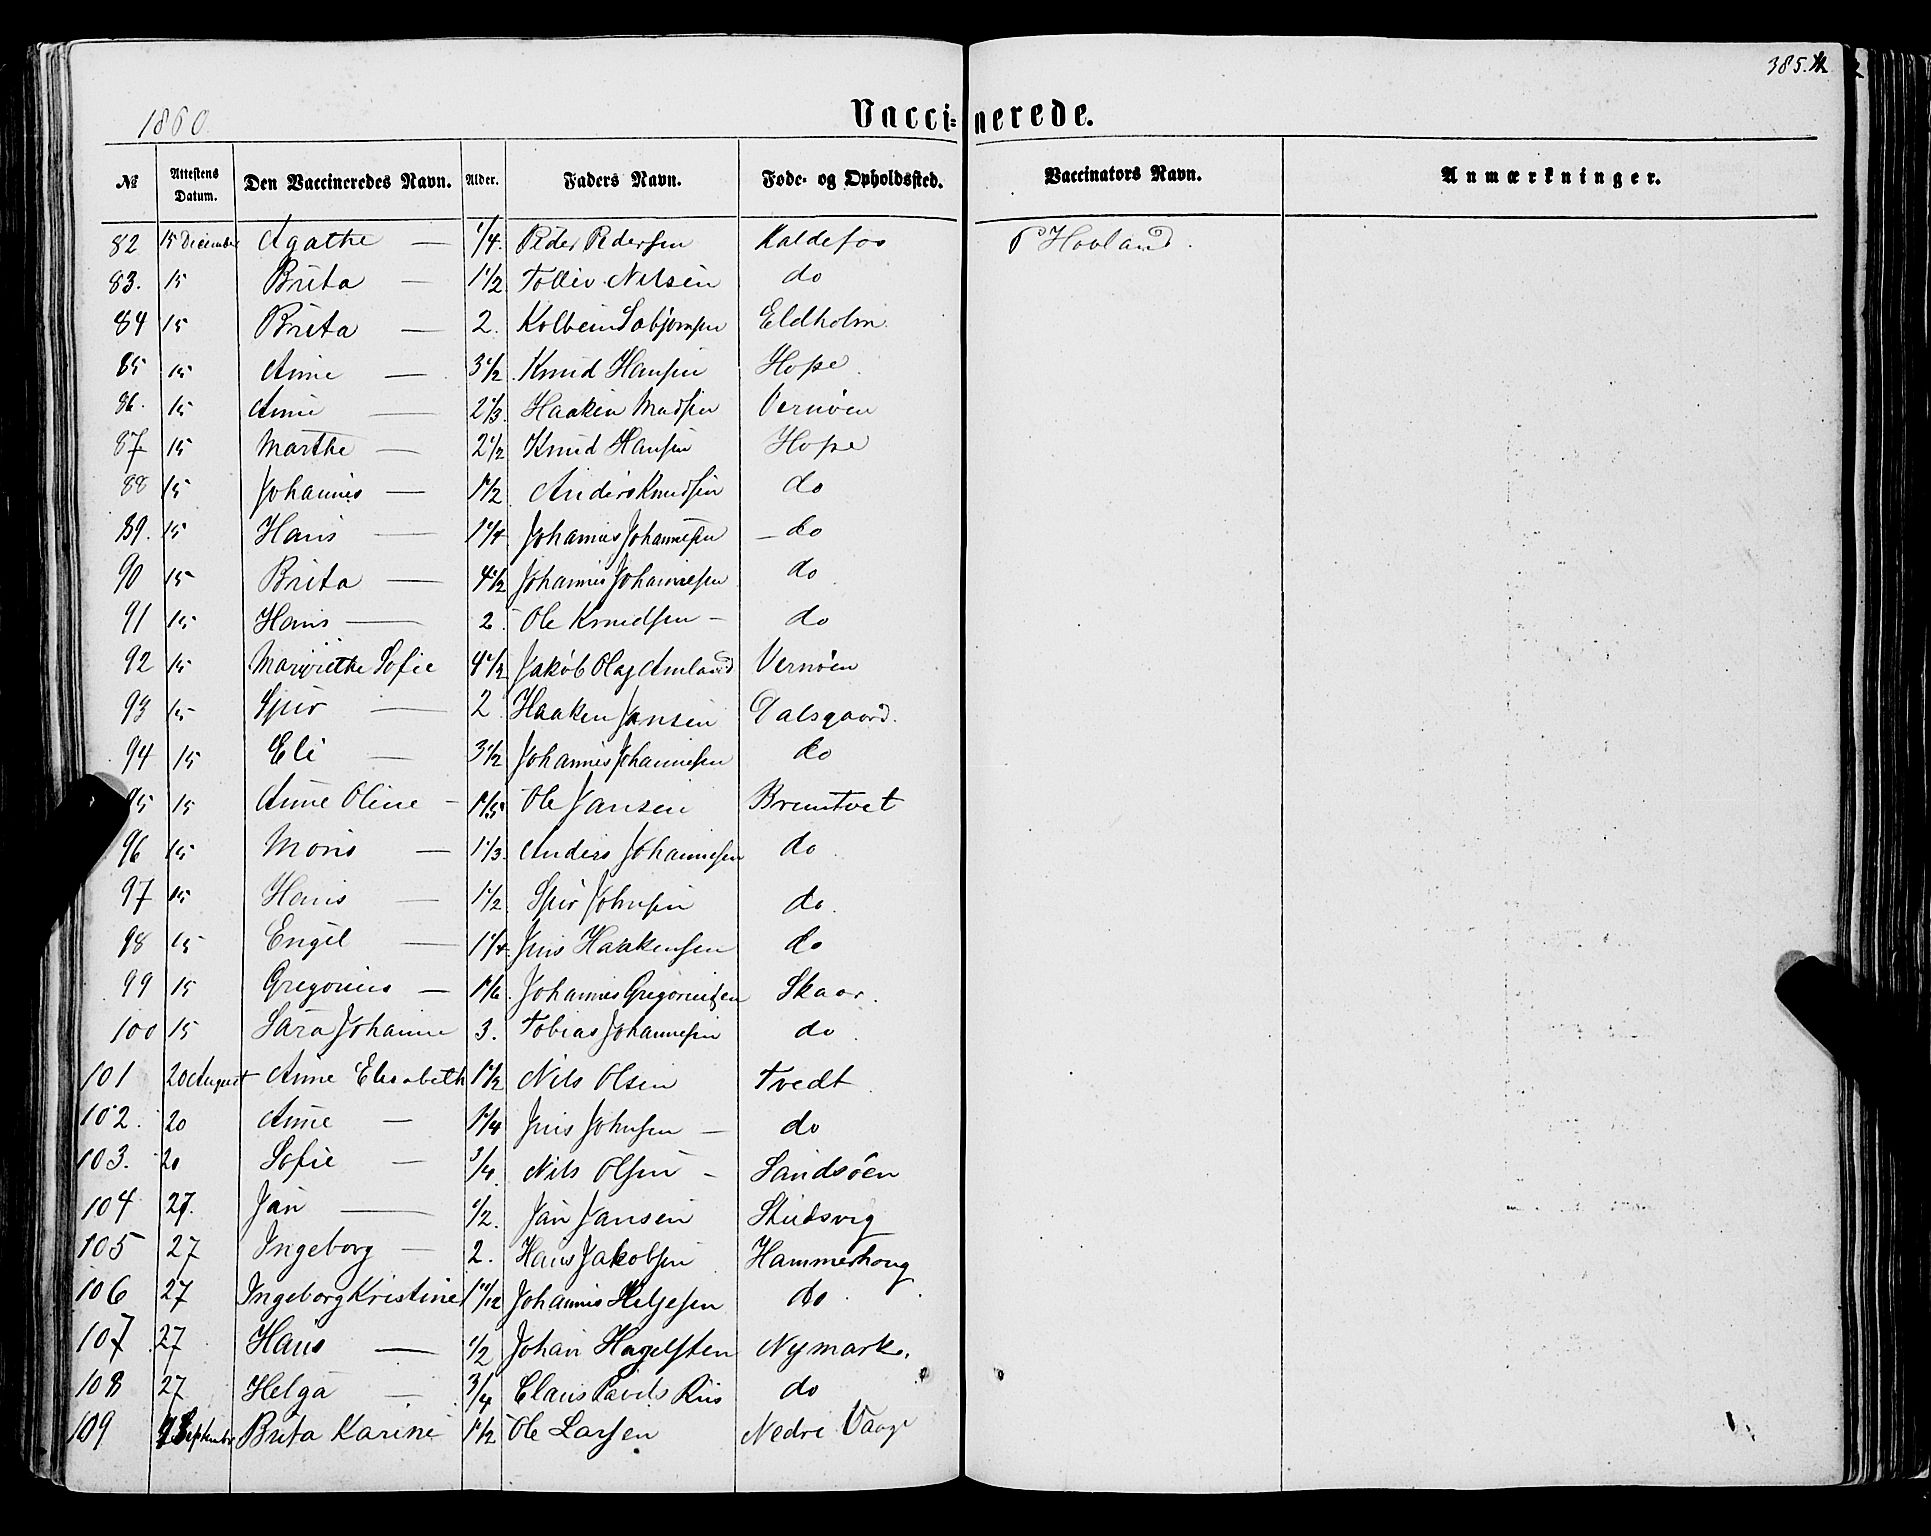 385.
1860.
Vacci=nerede.
№ Attestens Datum. Den Vaccineredes Navn. Alder. Faders Navn. Føde- og Opholdssted. Vaccinators Navn. Anmærkninger.
82 15 December Agathe — 1/4. Peder Pedersen Kaldefos P Hovland.
83. 15 Brita — 1 1/2 Tollev Nilsen do
84 15 Brita — 2. Kolbein Eldholm.
85 15 Anne — 3 1/2 Knud Hansen Hope.
86. 15 Anne — 2 1/3. Haaken Madsen Vernøen
87 15 Marthe — 2 1/2 Knud Hansen Hope
88 15 Johannes — 1 1/2 Anders Knudsen do
89. 15 Hans — 1 1/4 Johannes Johannesen — do
90 15 Brita — 4 1/2 Johannes Johannesen do
91 15 Hans — 2 Ole Knudsen — do
92 15 Margrethe Sofie 4 1/2 Jakob Amland Vernøen
93 15 Sjur — 2. Haaken Jansen Dalsgaard.
94 15 Eli — 3 1/2 Johannes Johannesen do
95 15 Anne Oline — 1 1/5 Ole Jansen Bremtvet
96 15 Mons — 1 1/3. Anders Johannesen do
97 15 Hans — 1 1/2 Sjur Johnsen do.
98 15 Engel — 1 1/4. Jens Haakensen do
99 15 Gregorius — 1 1/6. Johannes Gregoriusen Skaar.
100 15 Sara Johanne 3. Tobias Johannesen do
101 20 August Anne Elisabeth 1 1/2 Nils Olsen Tvedt
102. 20 Anne — 1 1/4 Jens Johnsen — do
103. 20 Sofie — 3/4. Nils Olsen — Sandsøen
104 27. Jan — 1/2. Jan Jansen Skudsvig
105 27 Ingeborg — 2. Hans Jakobsen Hammerhoug
106 27 Ingeborg Kristine 1 10/12 Johannes Helgesen do.
107 27 Hans — 1/2 Johan Hagelsten Nymark.
108 27 Helga — 3/4 Claus Pavels Riis do
109 September Brita Karine 1 1/2 Ole Larsen Nedre Vaage